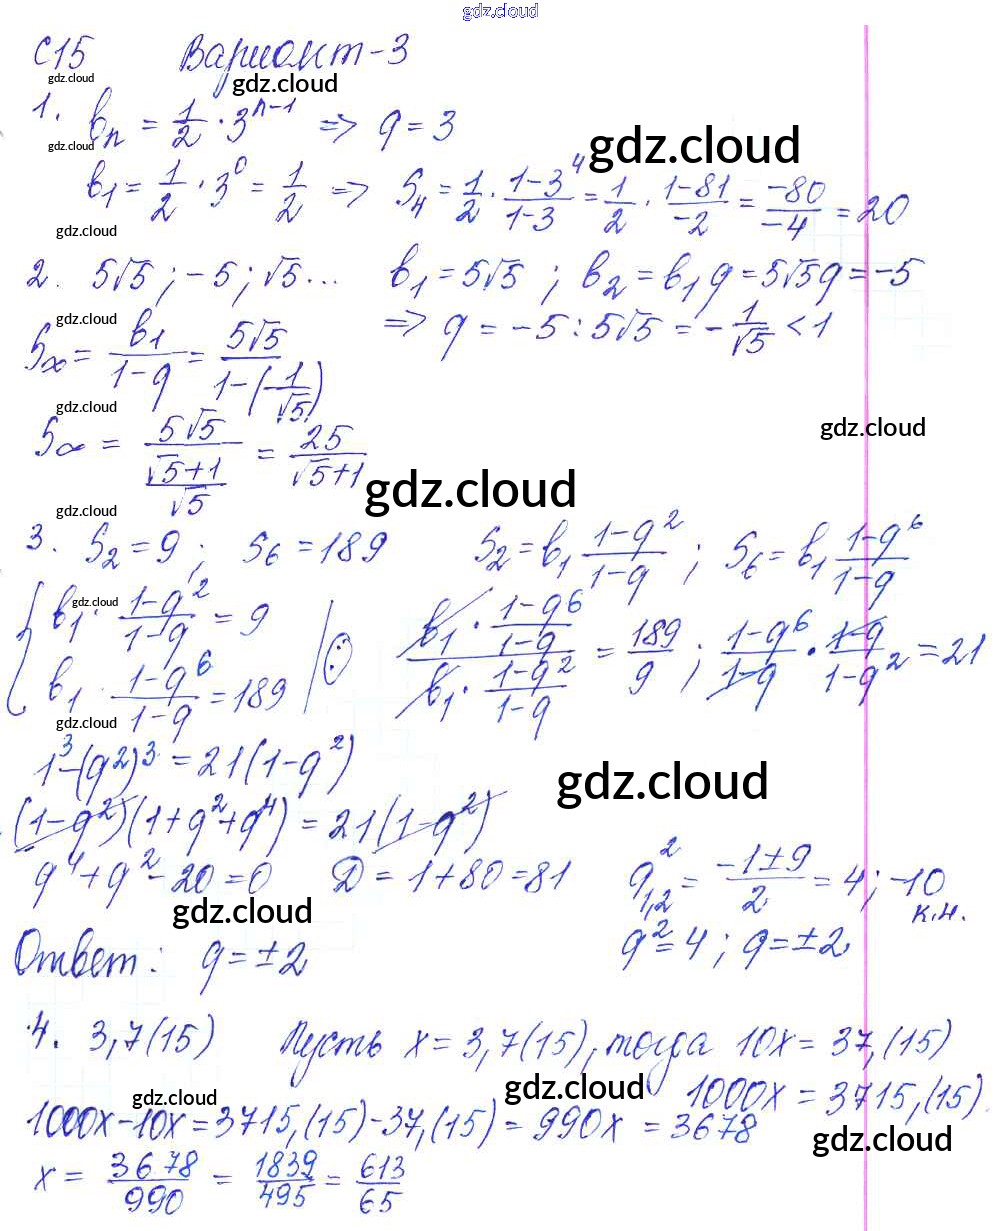 gdz.cloud
С15 Вариант-3
gdz.cloud gdz.cloud
1. bₙ = 1/2 · 3ⁿ⁻¹ => q = 3
gdz.cloud gdz.cloud
b₁ = 1/2 · 3⁰ = 1/2 => S₄ = 1/2 · (1-3⁴)/(1-3) = 1/2 · (1-81)/(-2) = (-80)/(-4) = 20
gdz.cloud
2. 5√5 ; -5 ; √5... b₁ = 5√5 ; b₂ = b₁q = 5√5q = -5
gdz.cloud
=> q = -5 : 5√5 = -1/√5 < 1
S∞ = b₁/(1-q) = 5√5/(1-(-1/√5))
gdz.cloud gdz.cloud
S∞ = 5√5/((√5+1)/√5) = 25/(√5+1)
gdz.cloud
gdz.cloud
3. S₂ = 9 ; S₆ = 189 S₂ = b₁ (1-q²)/(1-q) ; S₆ = b₁ (1-q⁶)/(1-q)
gdz.cloud
{ b₁ · (1-q²)/(1-q) = 9
b₁ · (1-q⁶)/(1-q) = 189 | : (b₁ · (1-q⁶)/(1-q))/(b₁ · (1-q²)/(1-q)) = 189/9 ; (1-q⁶)/(1-q) · (1-q)/(1-q²) = 21
gdz.cloud
1³-(q²)³ = 21(1-q²)
gdz.cloud
(1-q²)(1+q²+q⁴) = 21(1-q²)
q⁴+q²-20=0 D = 1+80=81 q²₁,₂ = (-1±9)/2 = 4 ; -10
gdz.cloud к.н.
q²=4 ; q=±2
Ответ: q=±2
4. 3,7(15) Пусть x = 3,7(15), тогда 10x = 37,(15)
gdz.cloud gdz.cloud 1000x = 3715,(15)
1000x-10x=3715,(15)-37,(15) = 990x = 3678
gdz.cloud
x = 3678/990 = 1839/495 = 613/65